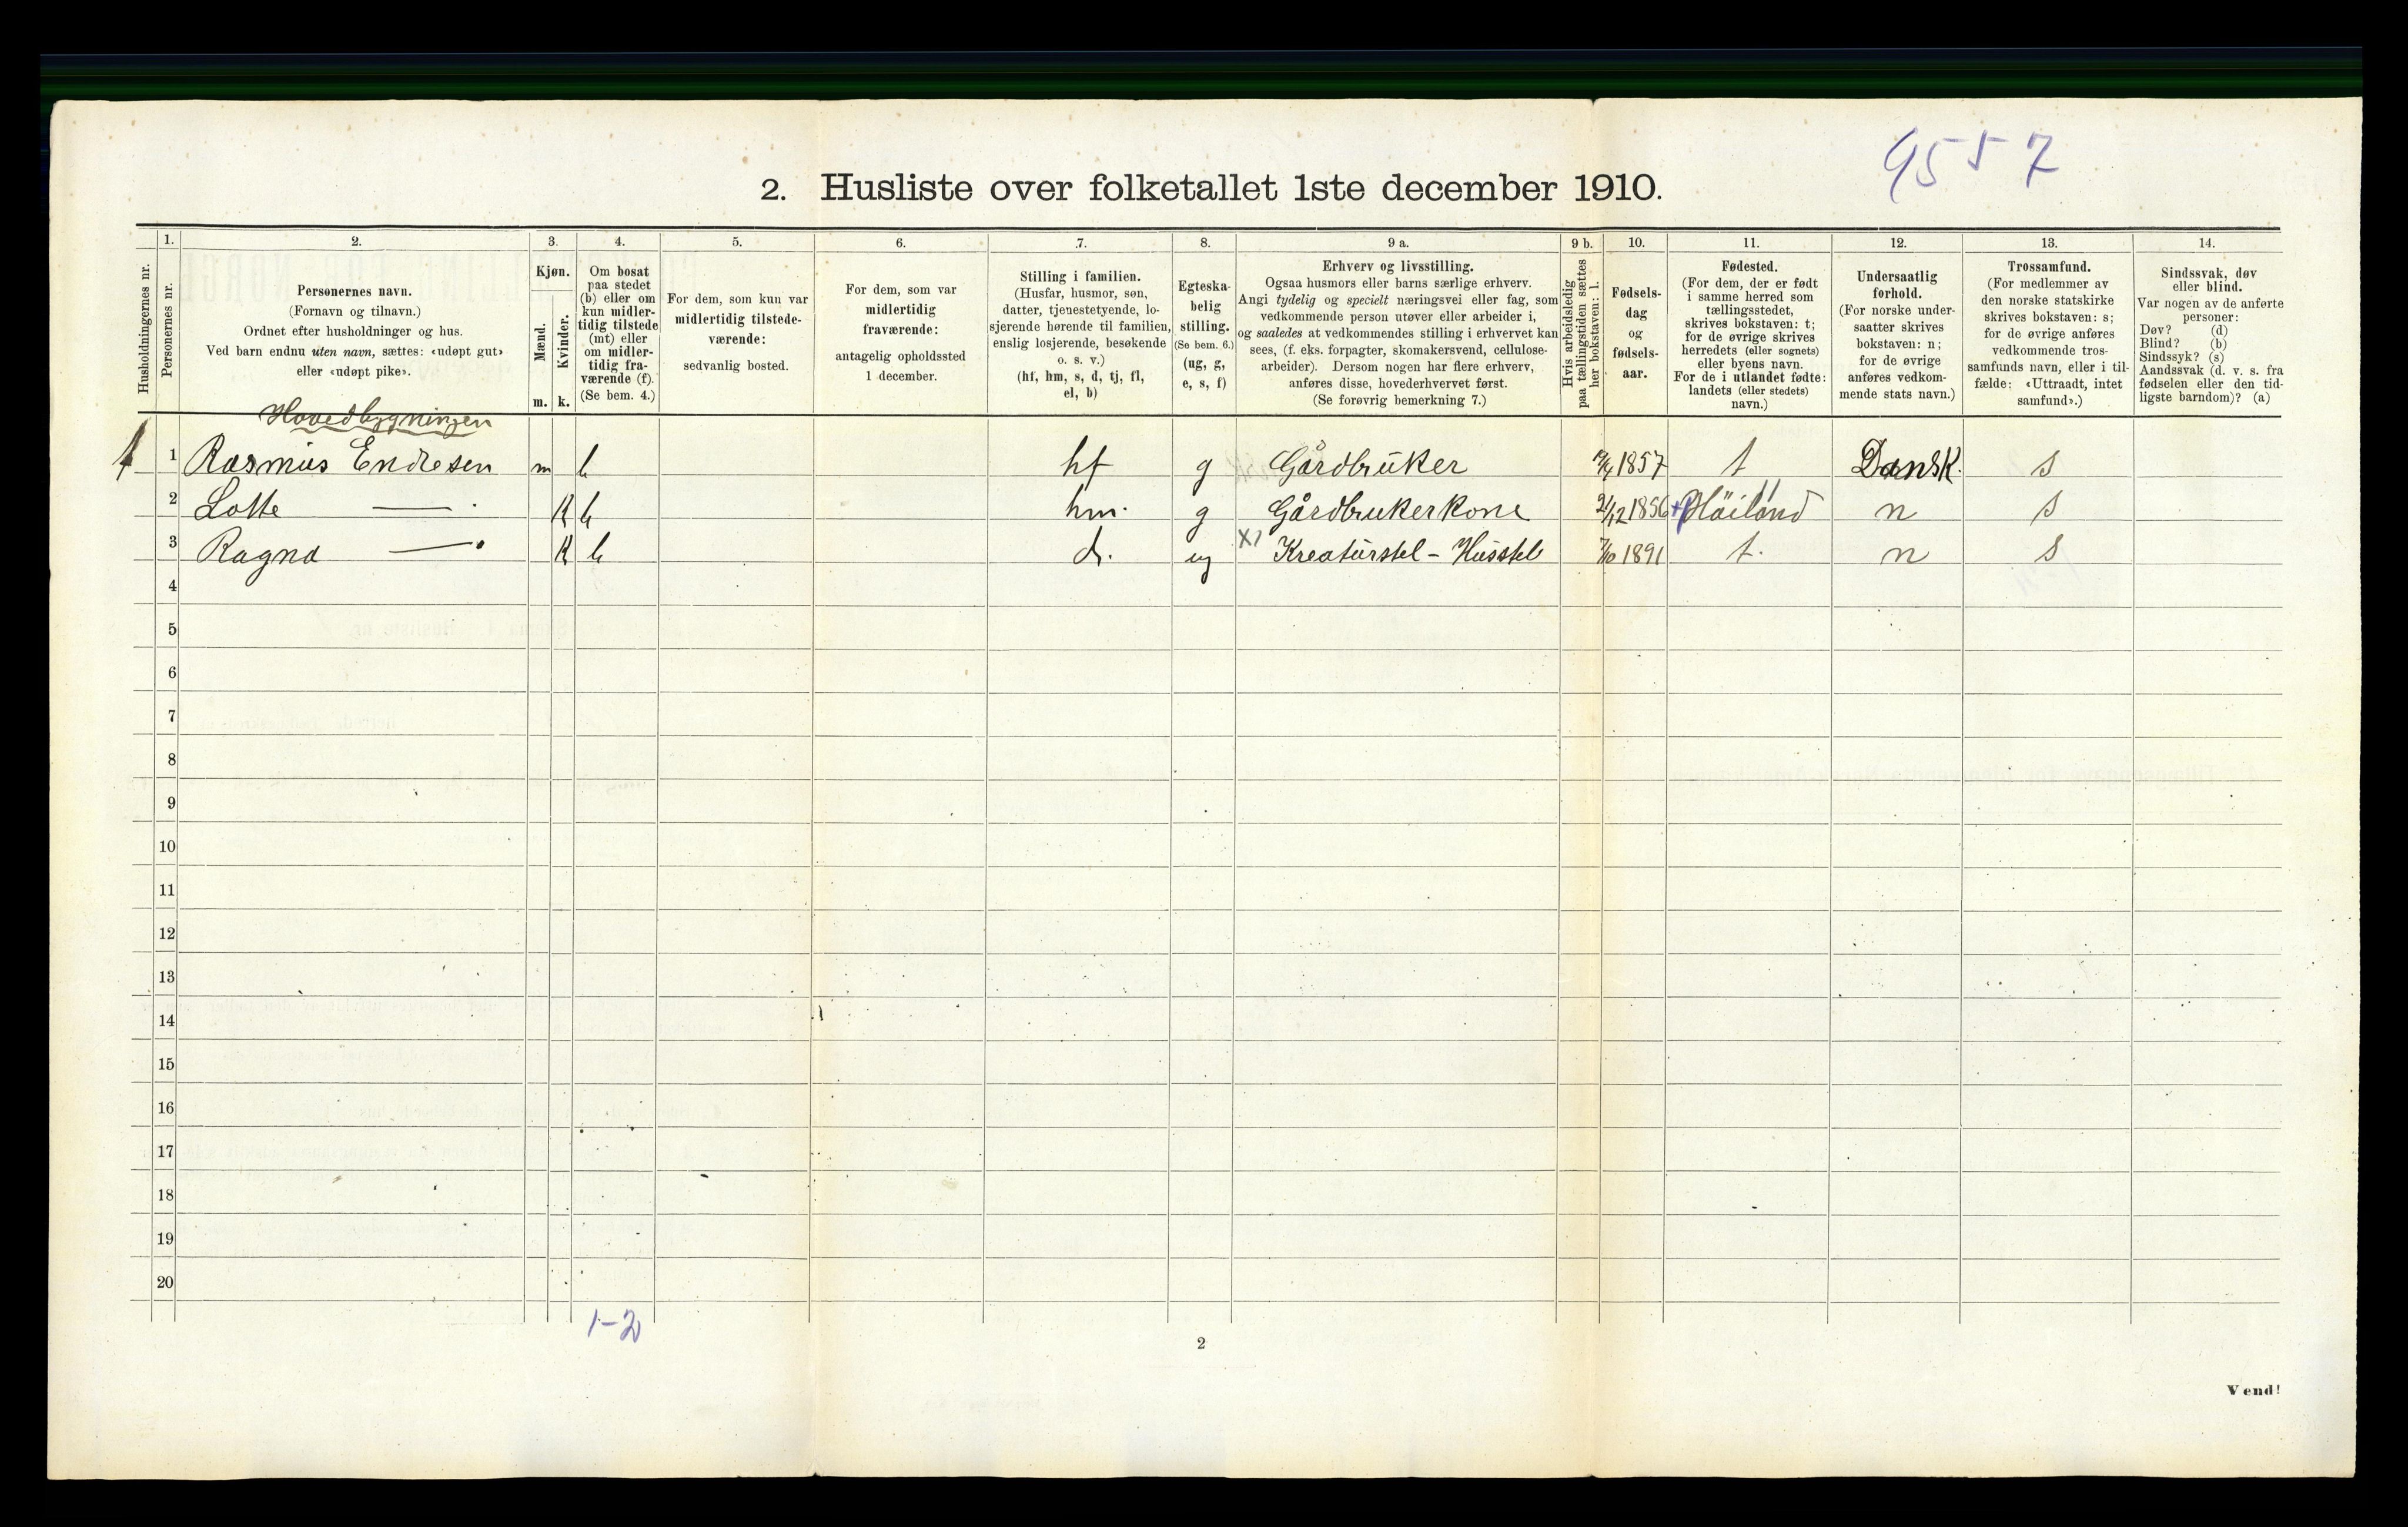 9557
2. Husliste over folketallet 1ste december 1910.
Husholdningernes nr.
1.
Personernes nr.
2.
Personernes navn.
(Fornavn og tilnavn.)
Ordnet efter husholdninger og hus.
Ved barn endnu uten navn, sættes: «udøpt gut»
eller «udøpt pike».
3.
Kjøn.
Mænd.
Kvinder.
m. k.
4.
Om bosat
paa stedet
(b) eller om
kun midler-
tidig tilstede
(mt) eller
om midler-
tidig fra-
værende (f).
(Se bem. 4.)
5.
For dem, som kun var
midlertidig tilstede-
værende:
sedvanlig bosted.
6.
For dem, som var
midlertidig
fraværende:
antagelig opholdssted
1 december.
7.
Stilling i familien.
(Husfar, husmor, søn,
datter, tjenestetyende, lo-
sjerende hørende til familien,
enslig losjerende, besøkende
o. s. v.)
(hf, hm, s, d, tj, fl,
el, b)
8.
Egteska-
belig
stilling.
(Se bem. 6.)
(ug, g,
e, s, f)
9 a.
Erhverv og livsstilling.
Ogsaa husmors eller barns særlige erhverv.
Angi tydelig og specielt næringsvei eller fag, som
vedkommende person utøver eller arbeider i,
og saaledes at vedkommendes stilling i erhvervet kan
sees, (f. eks. forpagter, skomakersvend, cellulose-
arbeider). Dersom nogen har flere erhverv,
anføres disse, hovederhvervet først.
(Se forøvrig bemerkning 7.)
9 b.
Hvis arbeidsledig
paa tællingstiden sættes
her bokstaven: l.
10.
Fødsels-
dag
og
fødsels-
aar.
11.
Fødested.
(For dem, der er født
i samme herred som
tællingsstedet,
skrives bokstaven: t;
for de øvrige skrives
herredets (eller sognets)
eller byens navn.
For de i utlandet fødte:
landets (eller stedets)
navn.)
12.
Undersaatlig
forhold.
(For norske under-
saatter skrives
bokstaven: n;
for de øvrige
anføres vedkom-
mende stats navn.)
13.
Trossamfund.
(For medlemmer av
den norske statskirke
skrives bokstaven: s;
for de øvrige anføres
vedkommende tros-
samfunds navn, eller i til-
fælde: «Uttraadt, intet
samfund».)
14.
Sindssvak, døv
eller blind.
Var nogen av de anførte
personer:
Døv? (d)
Blind? (b)
Sindssyk? (s)
Aandssvak (d. v. s. fra
fødselen eller den tid-
ligste barndom)? (a)
Hovedbygningen
1 1 Rasmus Endresen m b hf g Gårdbruker 1857 t Dansk. s
2 Lotte — K b hm. g Gårdbrukerkone 2/12 1856 Höiland n s
3 Ragna — K b d. ug X1 Kreaturstel - Husstel 7/10 1891 t. n s
4
5
6
7
8
9
10
11
12
13
14
15
16
17
18
19
20
1-2
2
Vend!